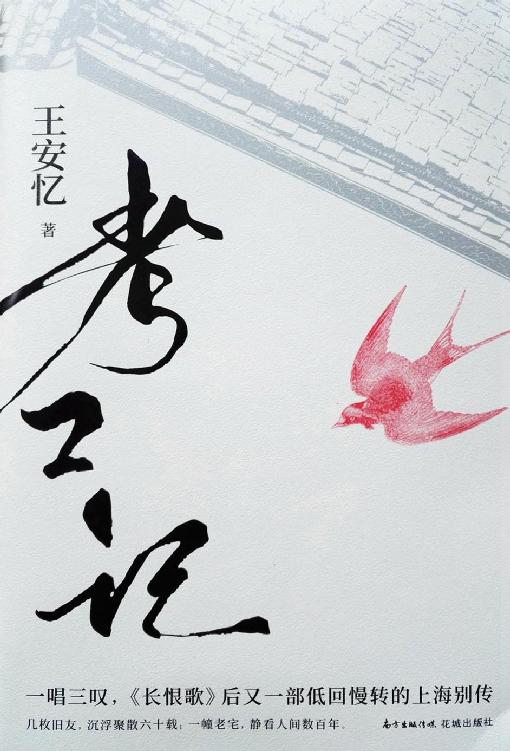 王安忆
著
考工记
一唱三叹，《长恨歌》后又一部低回慢转的上海别传
几枚旧友，沉浮聚散六十载；一幢老宅，静看人间数百年。
南方出版传媒 花城出版社